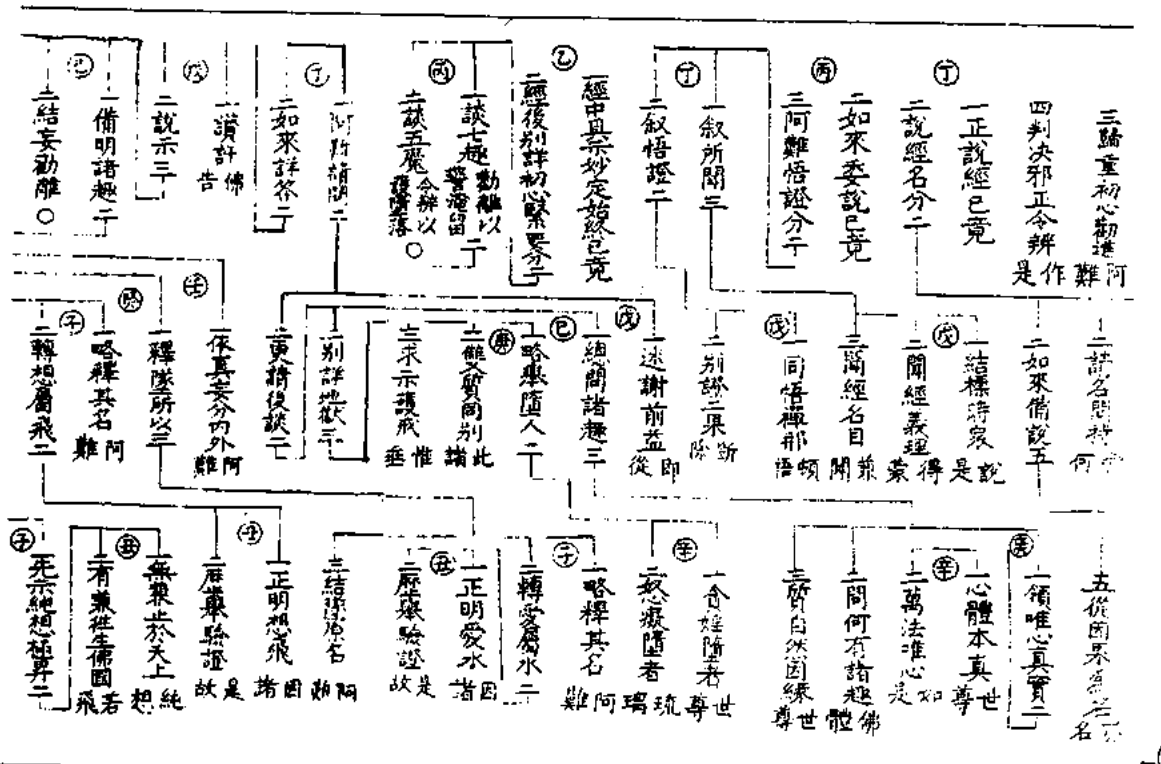 三歸重初心勸進
四判決邪正令辨 阿難作是
丁
一正說經已竟
二說經名分二
丙
二如來委說已竟
三阿難悟證分二
丁
一叙所聞三
二叙悟證二
乙
一經中具示妙定始終已竟
二經後別詳初心緊要分二
丙
一談七趣勸離以警淹留二
二談五魔令辨以護墮落○
丁
二如來詳答二
戊
一讚許 佛告
二說示三
己
一備明諸趣二
二結妄勸離○
二請名問持
二如來備說五
戊
一結標時眾 說是
二聞經義理 得蒙
三聞經名目 兼聞
戊
一同悟禪那 頓悟
二別證二果 斷除
戊
一述謝前益 即從
己
一總問諸趣三
庚
一略舉墮人二
二雙質同別 此諸
三求示護戒 惟垂
一別詳地獄三
二更請後談二
壬
一依真妄分內外 阿難
二釋墜所以三
癸
一略釋其名 阿難
子
二轉想屬飛二
五從因果為名
庚
一領唯心真實二
辛
一心體本真 世尊
二萬法唯心 如是
二問何有諸趣 佛體
三質自然因緣 世尊
辛
一貪婬墮者 世尊
二怒癡墮者 琉璃
子
一略釋其名 阿難
二轉愛屬水二
丑
一正明愛水 因諸
二歷舉驗證 是故
三結擦原名 阿難
丑
一正明想飛 因諸
二歷舉驗證 是故
丑
一無兼止於天上 純想
二有兼徃生佛國 若飛
子
一先示純想極昇二